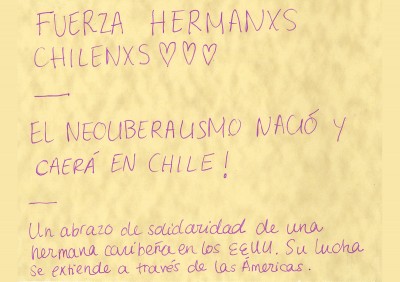 FUERZA HERMANXS
CHILENXS ♡♡♡
EL NEOLIBERALISMO NACIÓ Y
CAERÁ EN CHILE!
Un abrazo de solidaridad de una
hermana caribeña en los EEUU. Su lucha
se extiende a través de las Américas.